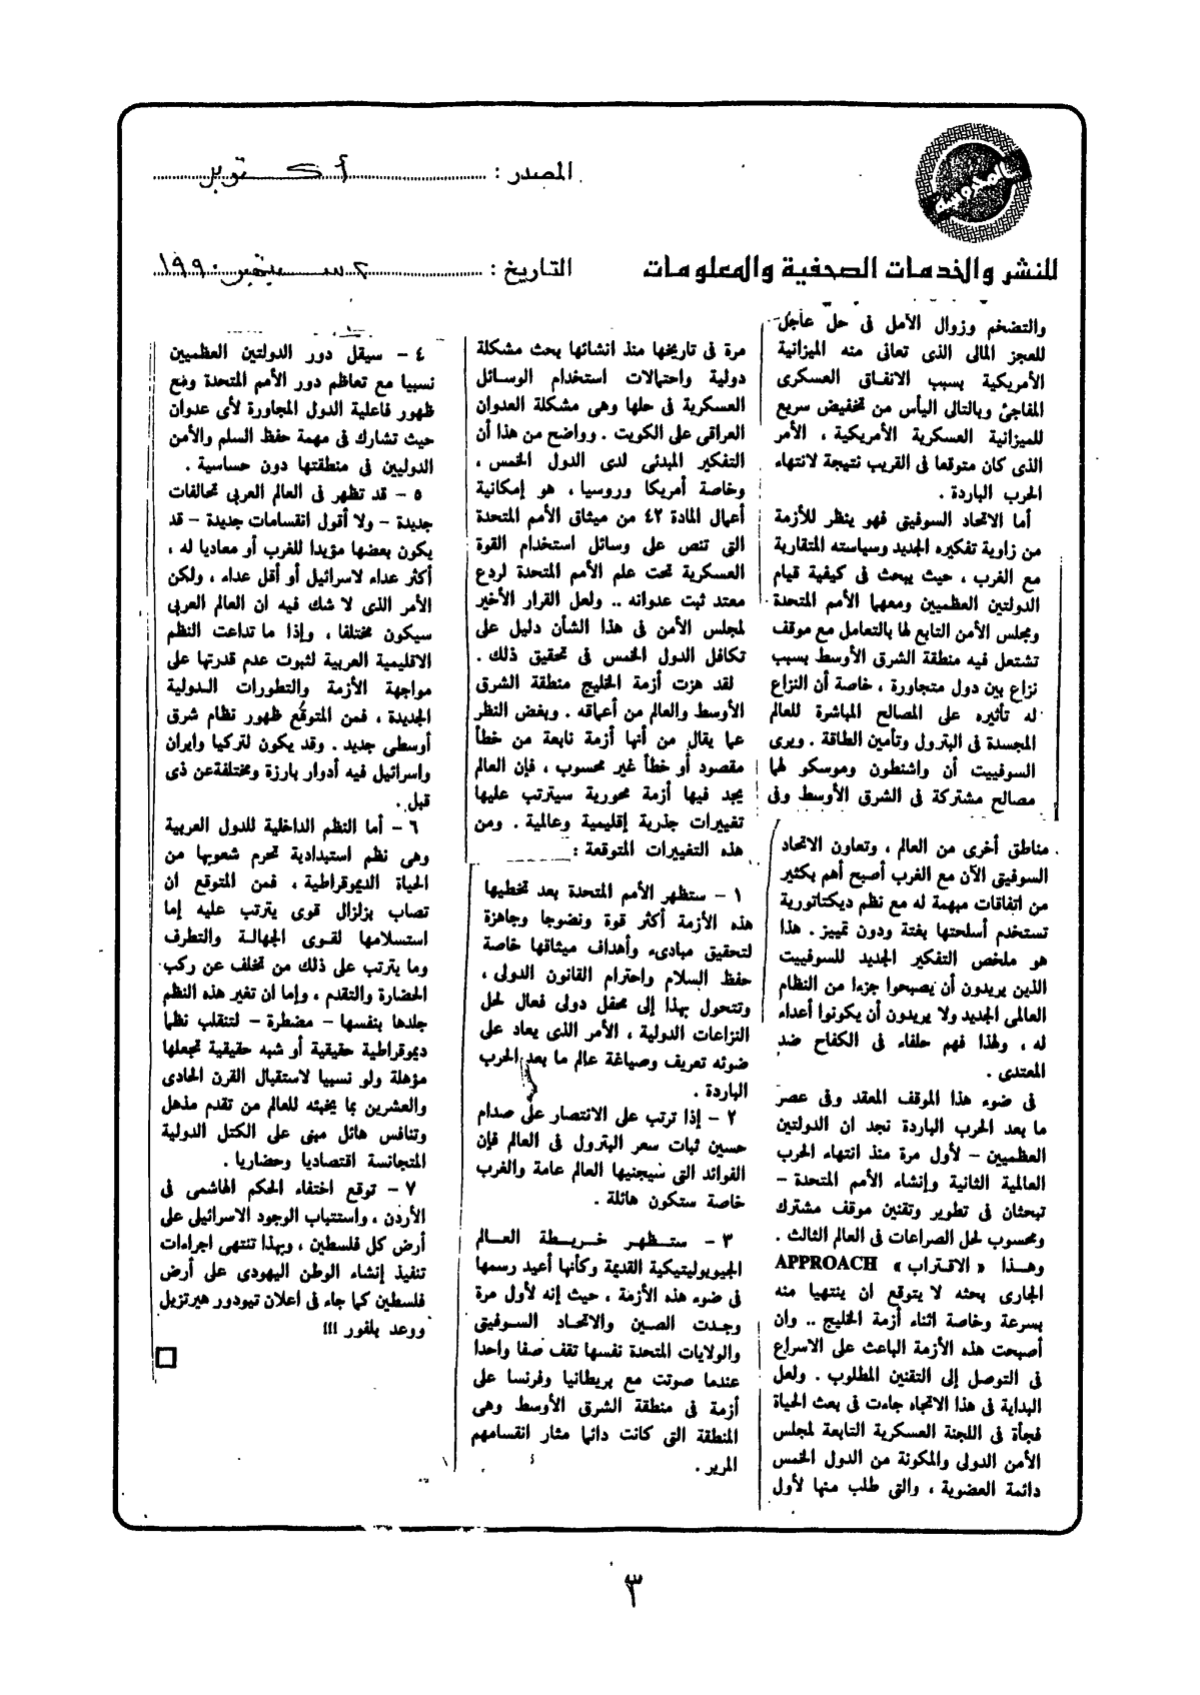 المصدر : أكتوبر
للنشر والخدمات الصحفية والمعلومات
التاريخ : ٢ سبتمبر ١٩٩٠
والتضخم وزوال الأمل فى حل عاجل
للعجز المالى الذى تعانى منه الميزانية
الأمريكية بسبب الانفاق العسكرى
المفاجئ وبالتالى اليأس من تخفيض سريع
للميزانية العسكرية الأمريكية ، الأمر
الذى كان متوقعا فى القريب نتيجة لانتهاء
الحرب الباردة .
أما الاتحاد السوفيتى فهو ينظر للأزمة
من زاوية تفكيره الجديد وسياسته المتقاربة
مع الغرب ، حيث يبحث فى كيفية قيام
الدولتين العظميين ومعهما الأمم المتحدة
ومجلس الأمن التابع لها بالتعامل مع موقف
تشتعل فيه منطقة الشرق الأوسط بسبب
نزاع بين دول متجاورة ، خاصة أن النزاع
له تأثيره على المصالح المباشرة للعالم
المجسدة فى البترول وتأمين الطاقة . ويرى
السوفييت أن واشنطون وموسكو لهما
مصالح مشتركة فى الشرق الأوسط وفى
مناطق أخرى من العالم ، وتعاون الاتحاد
السوفيتى الآن مع الغرب أصبح أهم بكثير
من اتفاقات مبهمة له مع نظم ديكتاتورية
تستخدم أسلحتها بغتة ودون تمييز . هذا
هو ملخص التفكير الجديد للسوفييت
الذين يريدون أن يصبحوا جزءا من النظام
العالمى الجديد ولا يريدون أن يكونوا أعداء
له ، ولهذا فهم حلفاء فى الكفاح ضد
المعتدى .
فى ضوء هذا الموقف المعقد وفى عصر
ما بعد الحرب الباردة نجد ان الدولتين
العظميين – لأول مرة منذ انتهاء الحرب
العالمية الثانية وإنشاء الأمم المتحدة –
تبحثان فى تطوير وتقنين موقف مشترك
ومحسوب لحل الصراعات فى العالم الثالث .
وهذا « الاقتراب » APPROACH
الجارى بحثه لا يتوقع ان ينتهيا منه
بسرعة وخاصة اثناء أزمة الخليج .. وان
أصبحت هذه الأزمة الباعث على الاسراع
فى التوصل إلى التقنين المطلوب . ولعل
البداية فى هذا الاتجاه جاءت فى بعث الحياة
فجأة فى اللجنة العسكرية التابعة لمجلس
الأمن الدولى والمكونة من الدول الخمس
دائمة العضوية ، والتى طلب منها لأول
مرة فى تاريخها منذ انشائها بحث مشكلة
دولية واحتمالات استخدام الوسائل
العسكرية فى حلها وهى مشكلة العدوان
العراقى على الكويت . وواضح من هذا أن
التفكير المبدئى لدى الدول الخمس ،
وخاصة أمريكا وروسيا ، هو إمكانية
أعمال المادة ٤٢ من ميثاق الأمم المتحدة
التى تنص على وسائل استخدام القوة
العسكرية تحت علم الأمم المتحدة لردع
معتد ثبت عدوانه .. ولعل القرار الأخير
لمجلس الأمن فى هذا الشأن دليل على
تكافل الدول الخمس فى تحقيق ذلك .
لقد هزت أزمة الخليج منطقة الشرق
الأوسط والعالم من أعماقه . وبغض النظر
عما يقال من أنها أزمة نابعة من خطأ
مقصود أو خطأ غير محسوب ، فإن العالم
يجد فيها أزمة محورية سيترتب عليها
تغييرات جذرية إقليمية وعالمية . ومن
هذه التغييرات المتوقعة :
١ – ستظهر الأمم المتحدة بعد تخطيها
هذه الأزمة أكثر قوة ونضوجا وجاهزة
لتحقيق مبادىء وأهداف ميثاقها خاصة
حفظ السلام واحترام القانون الدولى ،
وتتحول بهذا إلى محفل دولى فعال لحل
النزاعات الدولية ، الأمر الذى يعاد على
ضوئه تعريف وصياغة عالم ما بعد الحرب
الباردة .
٢ – إذا ترتب على الانتصار على صدام
حسين ثبات سعر البترول فى العالم فإن
الفوائد التى سيجنيها العالم عامة والغرب
خاصة ستكون هائلة .
٣ – ستظهر خريطة العالم
الجيوبوليتيكية القديمة وكأنها أعيد رسمها
فى ضوء هذه الأزمة ، حيث إنه لأول مرة
وجدت الصين والاتحاد السوفيتى
والولايات المتحدة نفسها تقف صفا واحدا
عندما صوتت مع بريطانيا وفرنسا على
أزمة فى منطقة الشرق الأوسط وهى
المنطقة التى كانت دائما مثار انقسامهم
المرير .
٤ – سيقل دور الدولتين العظميين
نسبيا مع تعاظم دور الأمم المتحدة ومع
ظهور فاعلية الدول المجاورة لأى عدوان
حيث تشارك فى مهمة حفظ السلم والأمن
الدوليين فى منطقتها دون حساسية .
٥ – قد تظهر فى العالم العربى تحالفات
جديدة – ولا أقول انقسامات جديدة – قد
يكون بعضها مؤيدا للغرب أو معاديا له ،
أكثر عداء لاسرائيل أو أقل عداء ، ولكن
الأمر الذى لا شك فيه ان العالم العربى
سيكون مختلفا ، وإذا ما تداعت النظم
الاقليمية العربية لثبوت عدم قدرتها على
مواجهة الأزمة والتطورات الدولية
الجديدة ، فمن المتوقع ظهور نظام شرق
أوسطى جديد . وقد يكون لتركيا وايران
واسرائيل فيه أدوار بارزة ومختلفة عن ذى
قبل .
٦ – أما النظم الداخلية للدول العربية
وهى نظم استبدادية تحرم شعوبها من
الحياة الديموقراطية ، فمن المتوقع ان
تصاب بزلزال قوى يترتب عليه إما
استسلامها لقوى الجهالة والتطرف
وما يترتب على ذلك من تخلف عن ركب
الحضارة والتقدم ، وإما ان تغير هذه النظم
جلدها بنفسها – مضطرة – لتنقلب نظما
ديموقراطية حقيقية أو شبه حقيقية تجعلها
مؤهلة ولو نسبيا لاستقبال القرن الحادى
والعشرين بما يخبئه للعالم من تقدم مذهل
وتنافس هائل مبنى على الكتل الدولية
المتجانسة اقتصاديا وحضاريا .
٧ – توقع اختفاء الحكم الهاشمى فى
الأردن ، واستتباب الوجود الاسرائيلى على
أرض كل فلسطين ، وبهذا تنتهى اجراءات
تنفيذ إنشاء الوطن اليهودى على أرض
فلسطين كما جاء فى اعلان تيودور هيرتزيل
ووعد بلفور !!!
٣